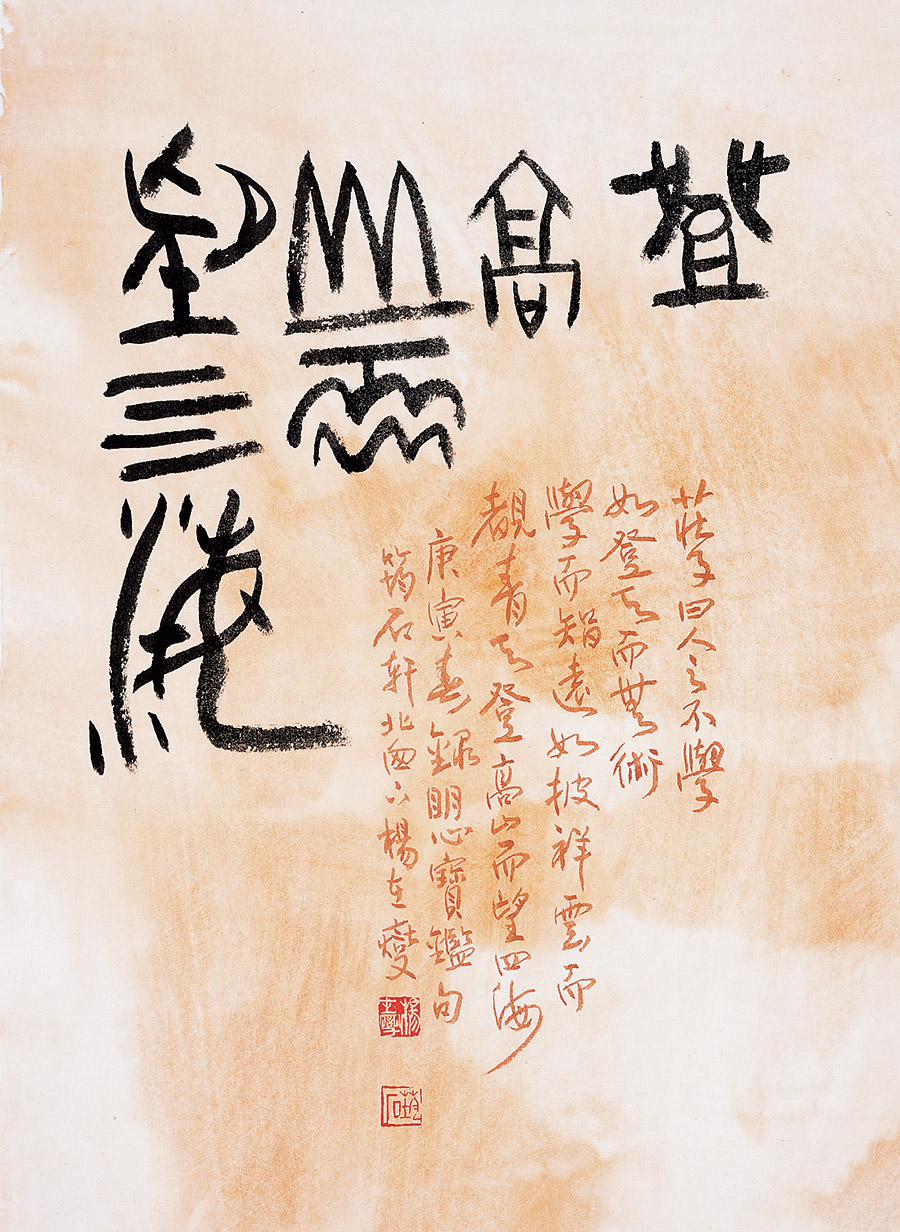 登
高
山而
望四海
莊子曰人之不學
如登天而無術
學而智遠如披祥雲而
覩青天登高山而望四海
庚寅春錄明心寶鑑句
筠石軒北囪下楊在燮
筠石